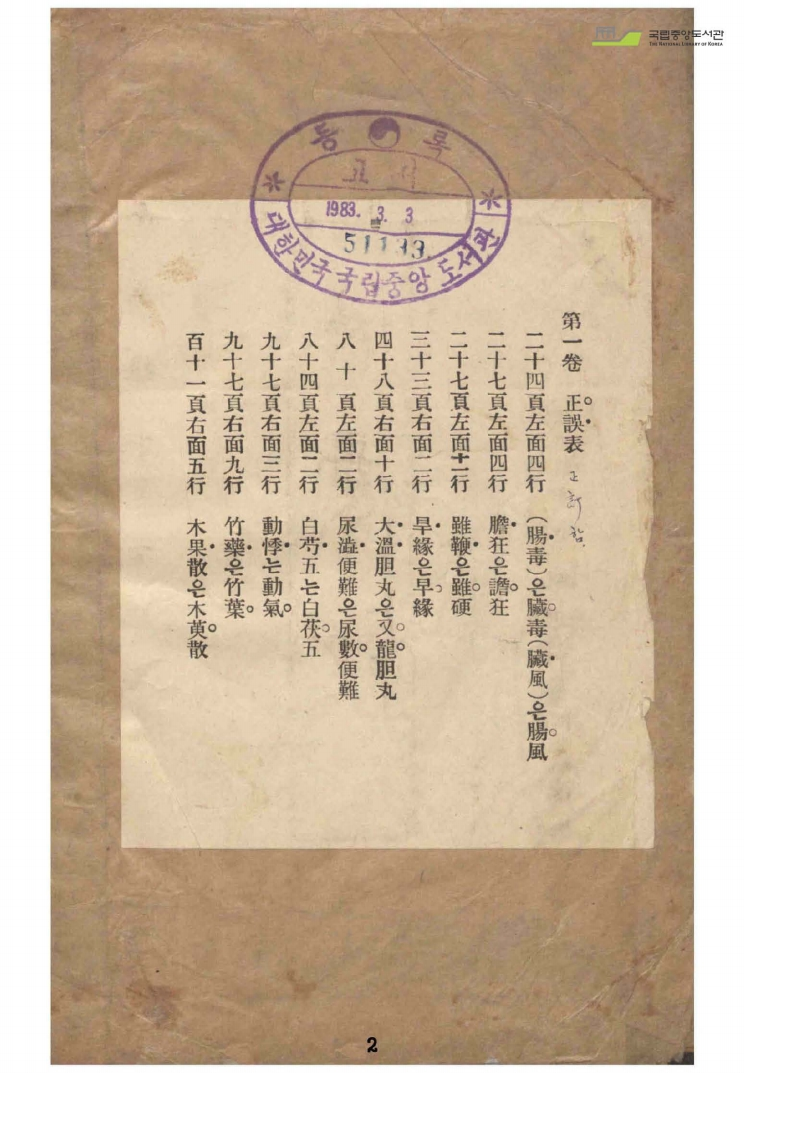 국립중앙도서관
THE NATIONAL LIBRARY OF KOREA
등록
고서
1983. 3. 3
51133
대한민국국립중앙도서관
第一卷 正誤表
二十四頁左面四行 (腸毒)은臟毒(臟風)은腸風
二十七頁左面四行 膽狂은譫狂
二十七頁左面十二行 雖鞭은雖硬
三十三頁右面二行 旱緣은早緣
四十八頁右面十行 大溫胆丸은又龍胆丸
八十頁左面二行 尿澁便難은尿數便難
八十四頁左面二行 白芍五는白茯五
九十七頁右面三行 動悸는動氣
九十七頁右面九行 竹藥은竹葉
百十一頁右面五行 木果散은木萸散
2